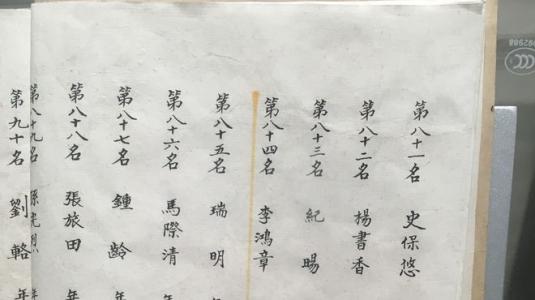 第八十一名 史保悠
第八十二名 楊書香
第八十三名 紀暘
第八十四名 李鴻章
第八十五名 瑞明
第八十六名 馬際清
第八十七名 鍾齡
第八十八名 張旅田 年
第八十九名 孫 年
第九十名 劉輅 年